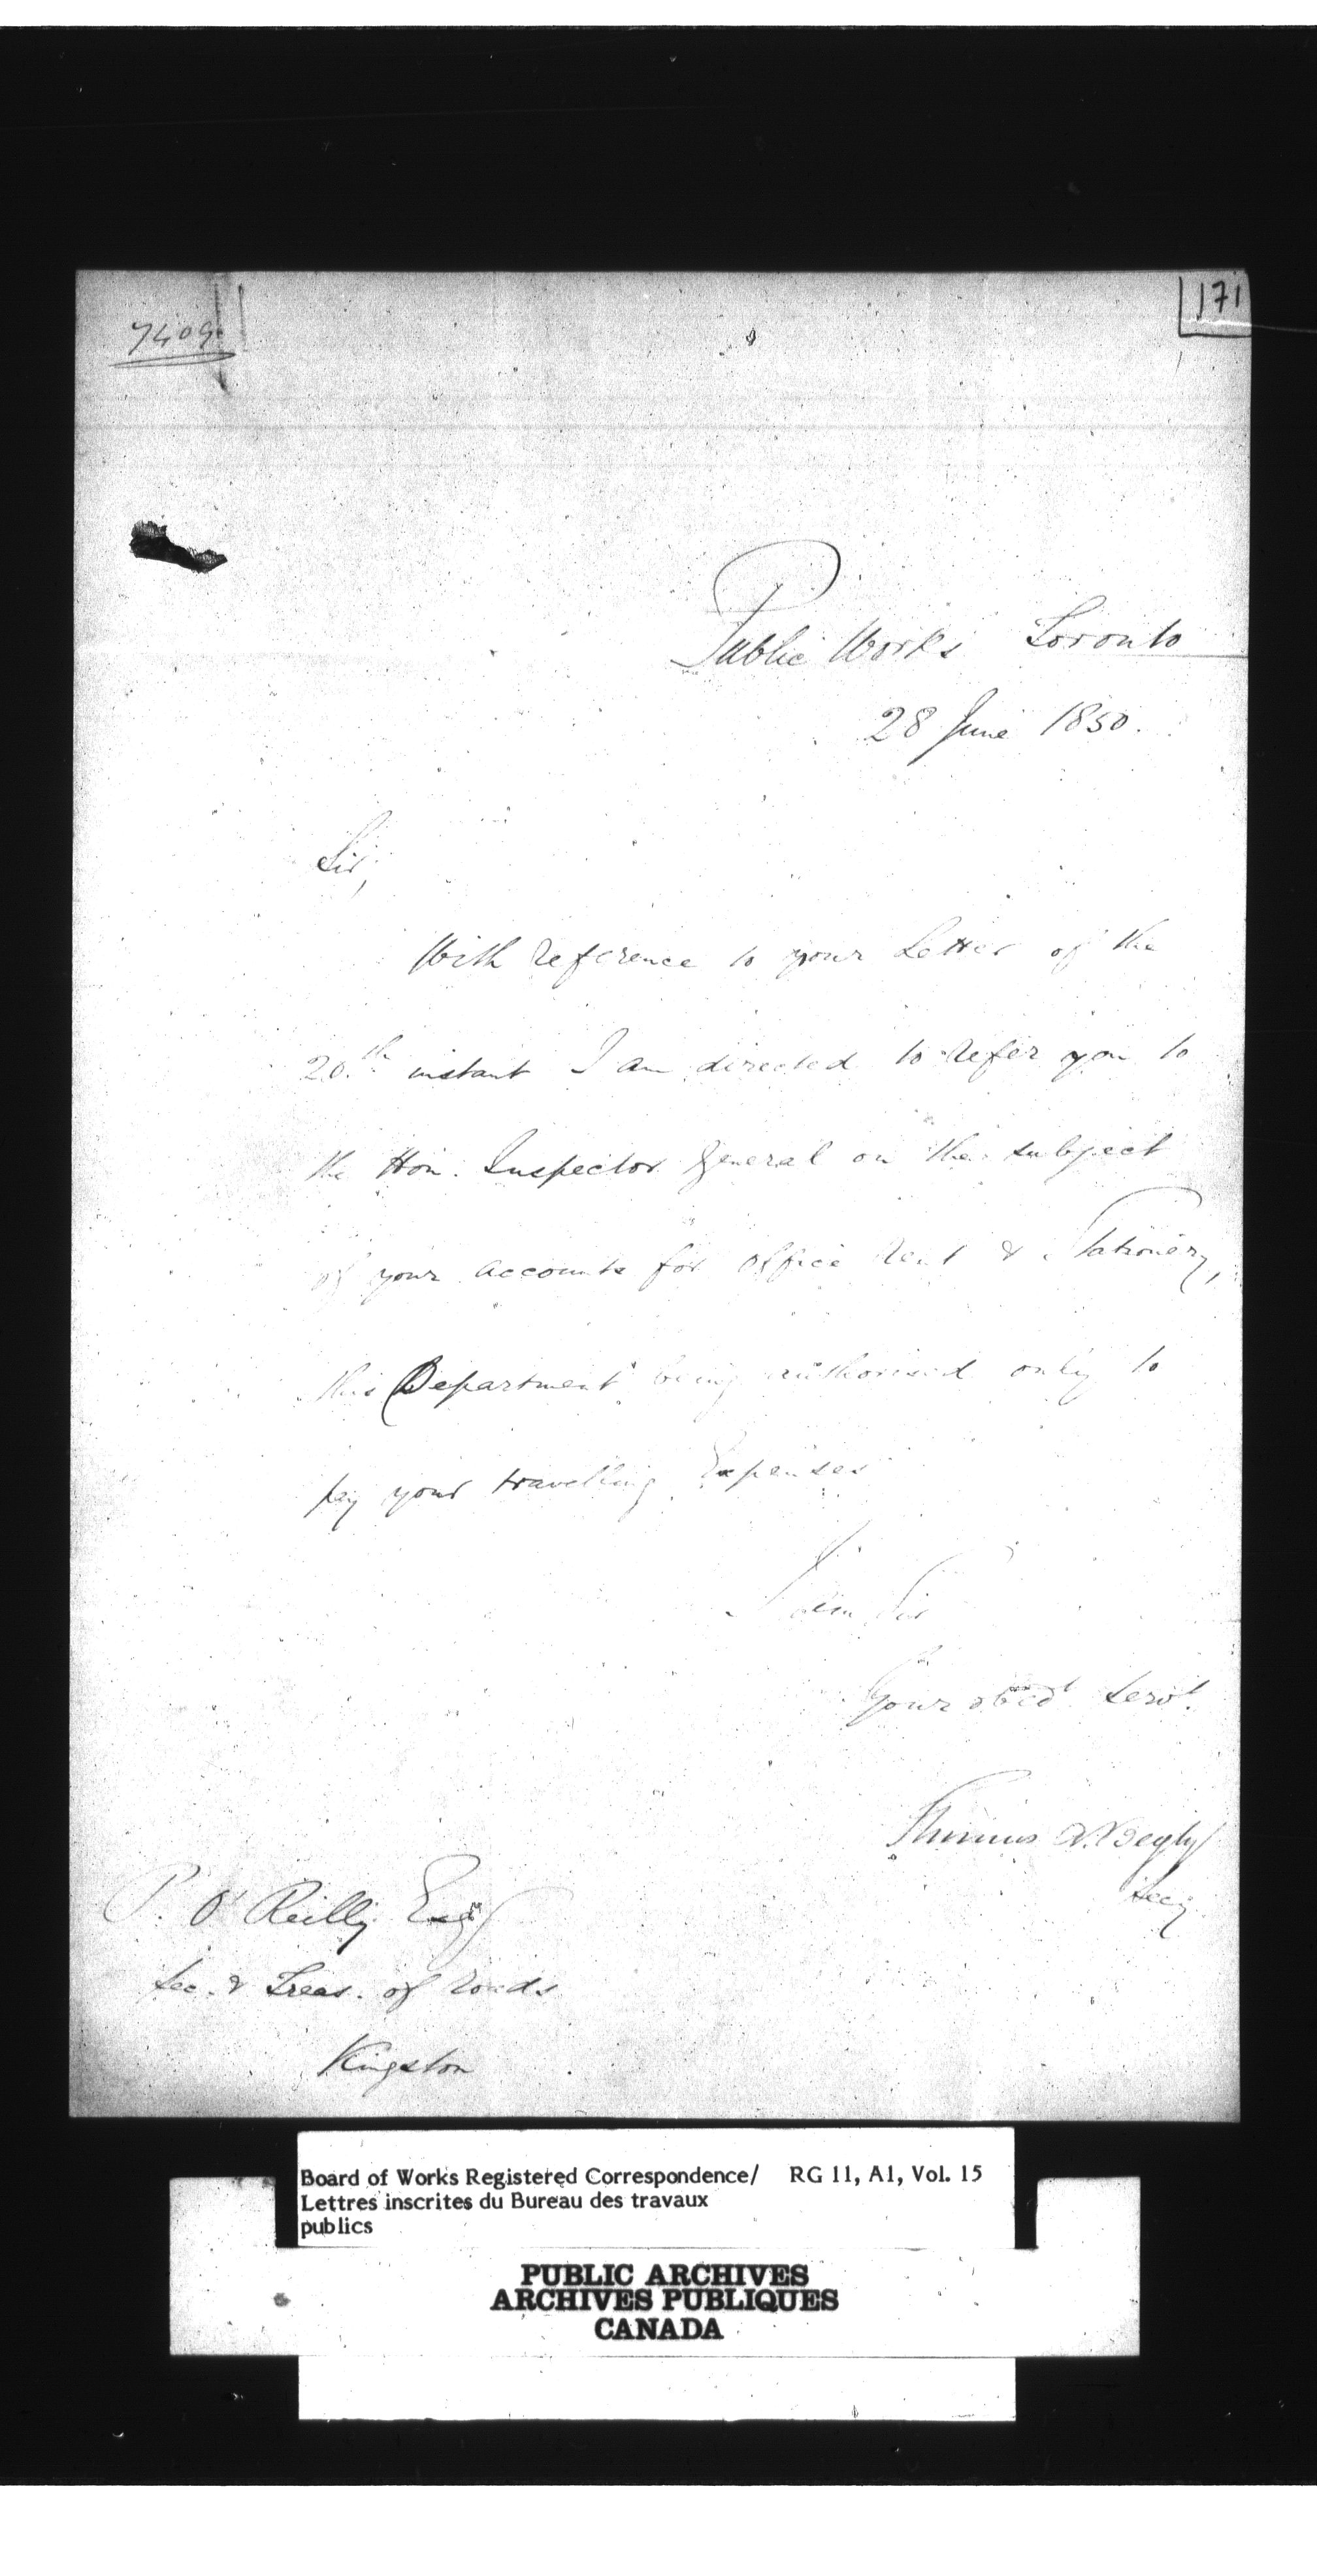 7409
171
Public Works Toronto
28 June 1850.
Sir,
With reference to your Letter of the
20.th instant I am directed to refer you to
the Hon. Inspector General on the subject
of your accounts for Office Rent & Stationery,
this Department being authorised only to
pay your travelling Expenses
I am Sir
Your obedt Servt.
Thomas A. Begly
Secy.
P. O'Reilly Esqr
Sec. & Treas. of Roads
Kingston
Board of Works Registered Correspondence/ RG 11, A1, Vol. 15
Lettres inscrites du Bureau des travaux
publics
PUBLIC ARCHIVES
ARCHIVES PUBLIQUES
CANADA